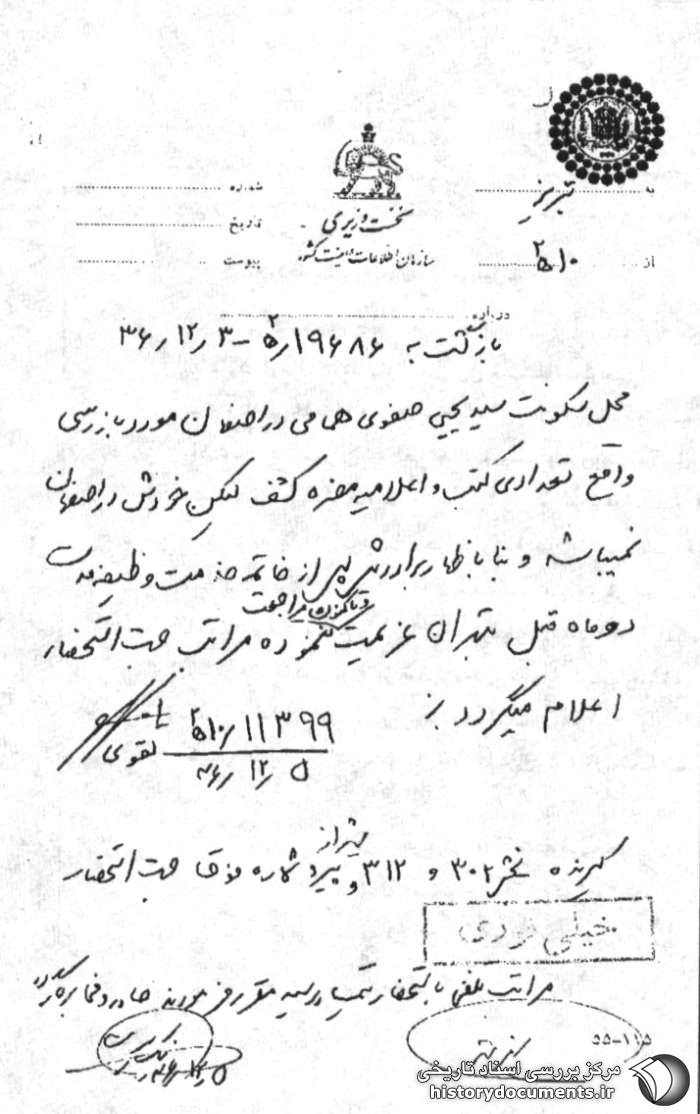 به تبریز
شماره
نخست وزیری
تاریخ
از ۵۱۰
سازمان اطلاعات و امنیت کشور
پیوست
درباره
بازگشت به ۵/۱۹۶۸۶ - ۳ / ۱۲ / ۳۶
محل سکونت سید یحیی صفوی همامی در اصفهان مورد بازرسی
واقع تعدادی کتب و اعلامیه مضره کشف لیکن خودش در اصفهان
نمیباشد و بنا باظهار برادرش پس از خاتمه خدمت وظیفه مدت
و تاکنون مراجعت
دو ماه قبل بتهران عزیمت ننموده مراتب جهت استحضار
اعلام میگردد
۵۱۰/۱۱۳۹۹
تقوی
۵ / ۱۲ / ۳۶
شیراز
گیرنده بخش ۳۰۲ و ۳۱۲ و پیرو شماره فوق جهت استحضار
خیلی فوری
مراتب تلفنی باستحضار ریاست
۱۱۵-۵۵
مرکز بررسی اسناد تاریخی
historydocuments.ir